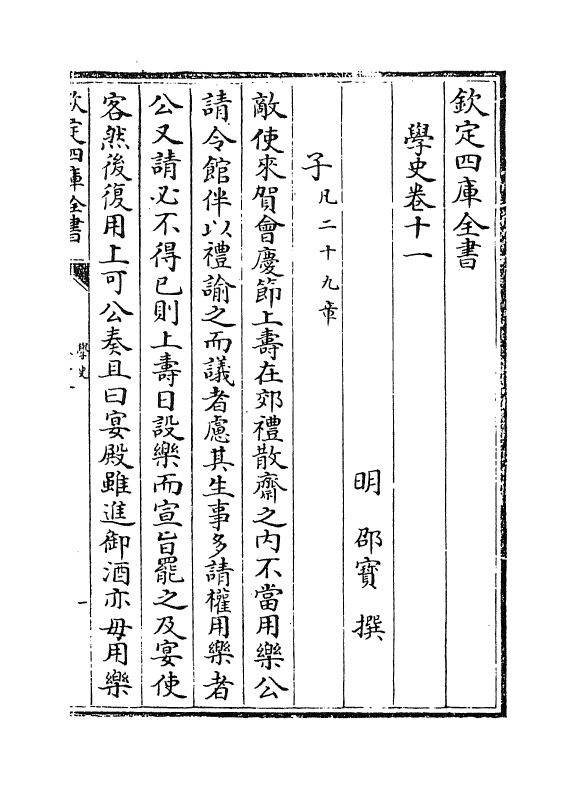 欽定四庫全書
學史卷十一
明 邵寶 撰
子凡二十九章
敵使來賀會慶節上壽在郊禮散齋之内不當用樂公
請令館伴以禮諭之而議者慮其生事多請權用樂者
公又請必不得已則上壽日設樂而宣旨罷之及宴使
客然後復用上可公奏且曰宴殿雖進御酒亦毋用樂
欽定四庫全書
學史
一